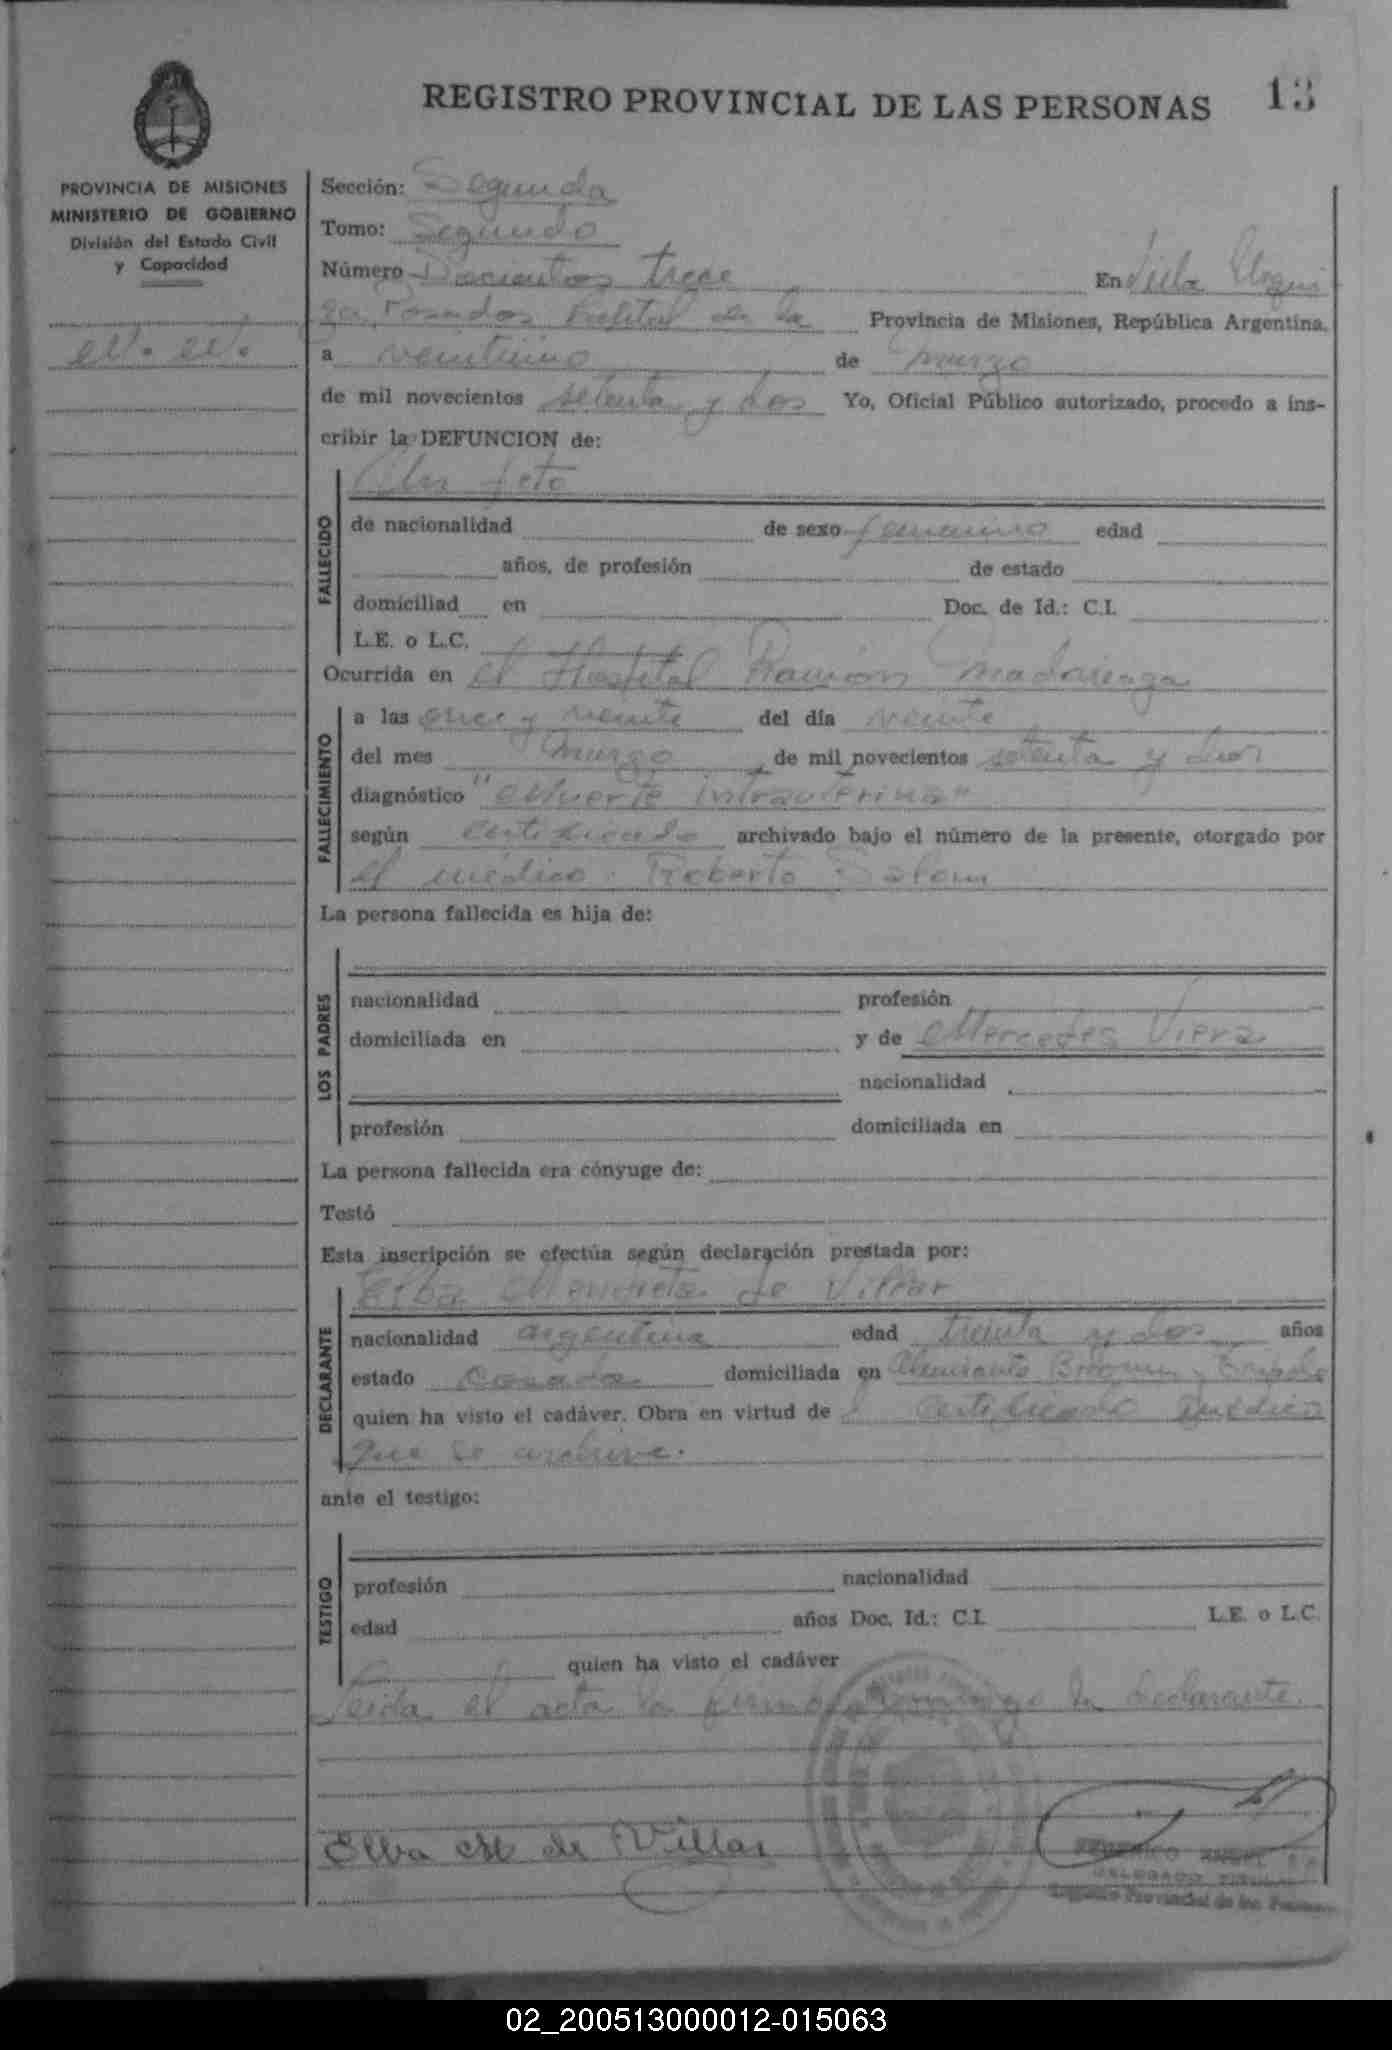 REGISTRO PROVINCIAL DE LAS PERSONAS
13
PROVINCIA DE MISIONES
MINISTERIO DE GOBIERNO
División del Estado Civil
y Capacidad
Sección: Segunda
Tomo: Segundo
Número Docientos trece En Villa Urqui
za, Posadas Capital de la Provincia de Misiones, República Argentina,
a veintiuno de marzo
de mil novecientos setenta y dos Yo, Oficial Público autorizado, procedo a ins-
cribir la DEFUNCION de:
Un feto
FALLECIDO
de nacionalidad de sexo femenino edad
años, de profesión de estado
domiciliad en Doc. de Id.: C.I.
L.E. o L.C.
Ocurrida en el Hospital Ramón Madariaga
FALLECIMIENTO
a las once y veinte del día veinte
del mes marzo de mil novecientos setenta y dos
diagnóstico "Muerte intrauterina"
según certificado archivado bajo el número de la presente, otorgado por
el médico: Roberto
La persona fallecida es hija de:
LOS PADRES
nacionalidad profesión
domiciliada en y de Mercedes Viera
nacionalidad
profesión domiciliada en
La persona fallecida era cónyuge de:
Testó
Esta inscripción se efectúa según declaración prestada por:
Elba Mendieta de Villar
DECLARANTE
nacionalidad argentina edad treinta y dos años
estado casada domiciliada en Almirante Brown y
quien ha visto el cadáver. Obra en virtud de l certificado médico
que se archiva.
ante el testigo:
TESTIGO
profesión nacionalidad
edad años Doc. Id.: C.I. L.E. o L.C.
quien ha visto el cadáver
Leída el acta la firmó conmigo la declarante.
Elba M de Villar
DELEGADO TITULAR
Registro Provincial de las Personas
02_200513000012-015063